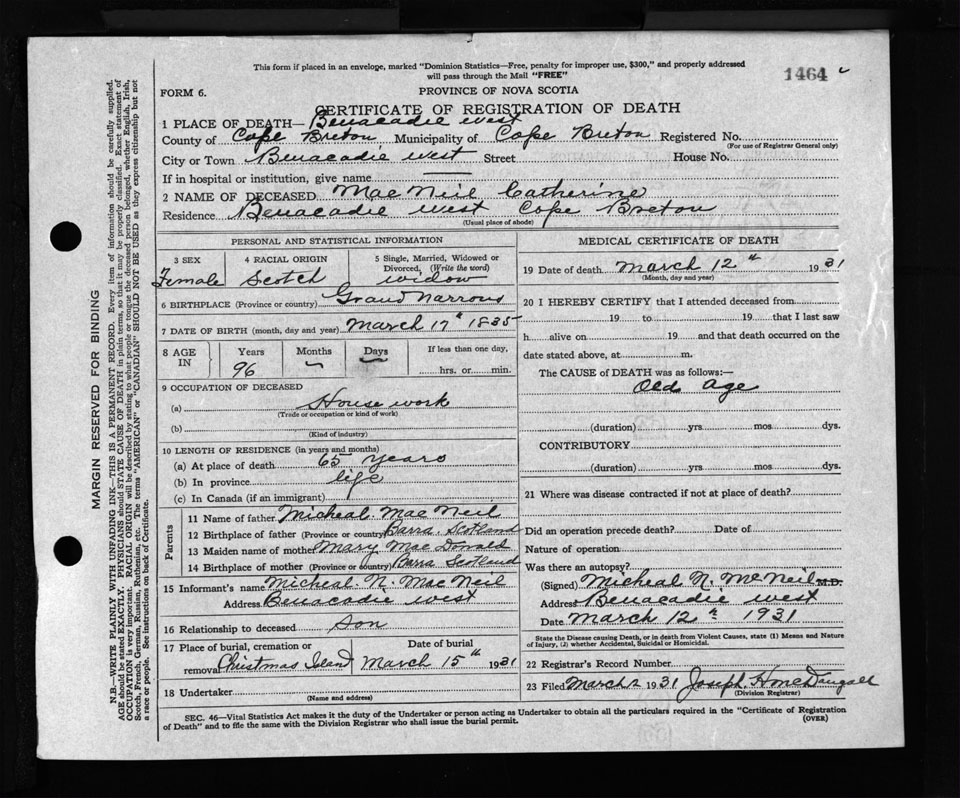 This form if placed in an enveloge, marked "Dominion Statistics—Free, penalty for improper use, $300," and properly addressed
will pass through the Mail "FREE"
1464
FORM 6.
PROVINCE OF NOVA SCOTIA
CERTIFICATE OF REGISTRATION OF DEATH
1 PLACE OF DEATH— Benacadie West
County of Cape Breton Municipality of Cape Breton Registered No.
(For use of Registrar General only)
City or Town Benacadie West Street House No.
If in hospital or institution, give name
2 NAME OF DECEASED MacNeil Catherine
Residence Benacadie West Cape Breton
(Usual place of abode)
PERSONAL AND STATISTICAL INFORMATION
3 SEX 4 RACIAL ORIGIN 5 Single, Married, Widowed or
Divorced, (Write the word)
Female Scotch widow
6 BIRTHPLACE (Province or country) Grand Narrows
7 DATE OF BIRTH (month, day and year) March 17th 1835
8 AGE IN Years Months Days If less than one day,
96 hrs. or min.
9 OCCUPATION OF DECEASED
(a) House work
(Trade or occupation or kind of work)
(b)
(Kind of industry)
10 LENGTH OF RESIDENCE (in years and months)
(a) At place of death 65 years
(b) In province life
(c) In Canada (if an immigrant)
Parents
11 Name of father Micheal MacNeil
12 Birthplace of father (Province or country) Barra Scotland
13 Maiden name of mother Mary MacDonald
14 Birthplace of mother (Province or country) Barra Scotland
15 Informant's name Micheal N. MacNeil
Address Benacadie West
16 Relationship to deceased Son
17 Place of burial, cremation or Date of burial
removal Christmas Island March 15th 1931
18 Undertaker
(Name and address)
MEDICAL CERTIFICATE OF DEATH
19 Date of death March 12th 1931
(Month, day and year)
20 I HEREBY CERTIFY that I attended deceased from
19 to 19 that I last saw
h alive on 19 and that death occurred on the
date stated above, at m.
The CAUSE of DEATH was as follows:—
Old Age
(duration) yrs mos dys.
CONTRIBUTORY
(duration) yrs mos dys.
21 Where was disease contracted if not at place of death?
Did an operation precede death? Date of
Nature of operation
Was there an autopsy?
(Signed) Micheal N. McNeil M.D.
Address Benacadie West
Date March 12th 1931
State the Disease causing Death, or in death from Violent Causes, state (1) Means and Nature
of Injury, (2) whether Accidental, Suicidal or Homicidal.
22 Registrar's Record Number
23 Filed March 1931 Joseph
(Division Registrar)
SEC. 46—Vital Statistics Act makes it the duty of the Undertaker or person acting as Undertaker to obtain all the particulars required in the "Certificate of Registration
of Death" and to file the same with the Division Registrar who shall issue the burial permit. (OVER)
MARGIN RESERVED FOR BINDING
N.B.—WRITE PLAINLY WITH UNFADING INK—THIS IS A PERMANENT RECORD. Every item of information should be carefully supplied.
AGE should be stated EXACTLY. PHYSICIANS should STATE CAUSE OF DEATH in plain terms, so that it may be properly classified. Exact statement of
OCCUPATION is very important. RACIAL ORIGIN will be described by stating to what people or tongue the deceased person belonged, whether English, Irish,
Scotch, French, German, Russian, Ruthenian, etc. The terms "AMERICAN" or "CANADIAN" SHOULD NOT BE USED as they express citizenship but not
a race or people. See instructions on back of Certificate.